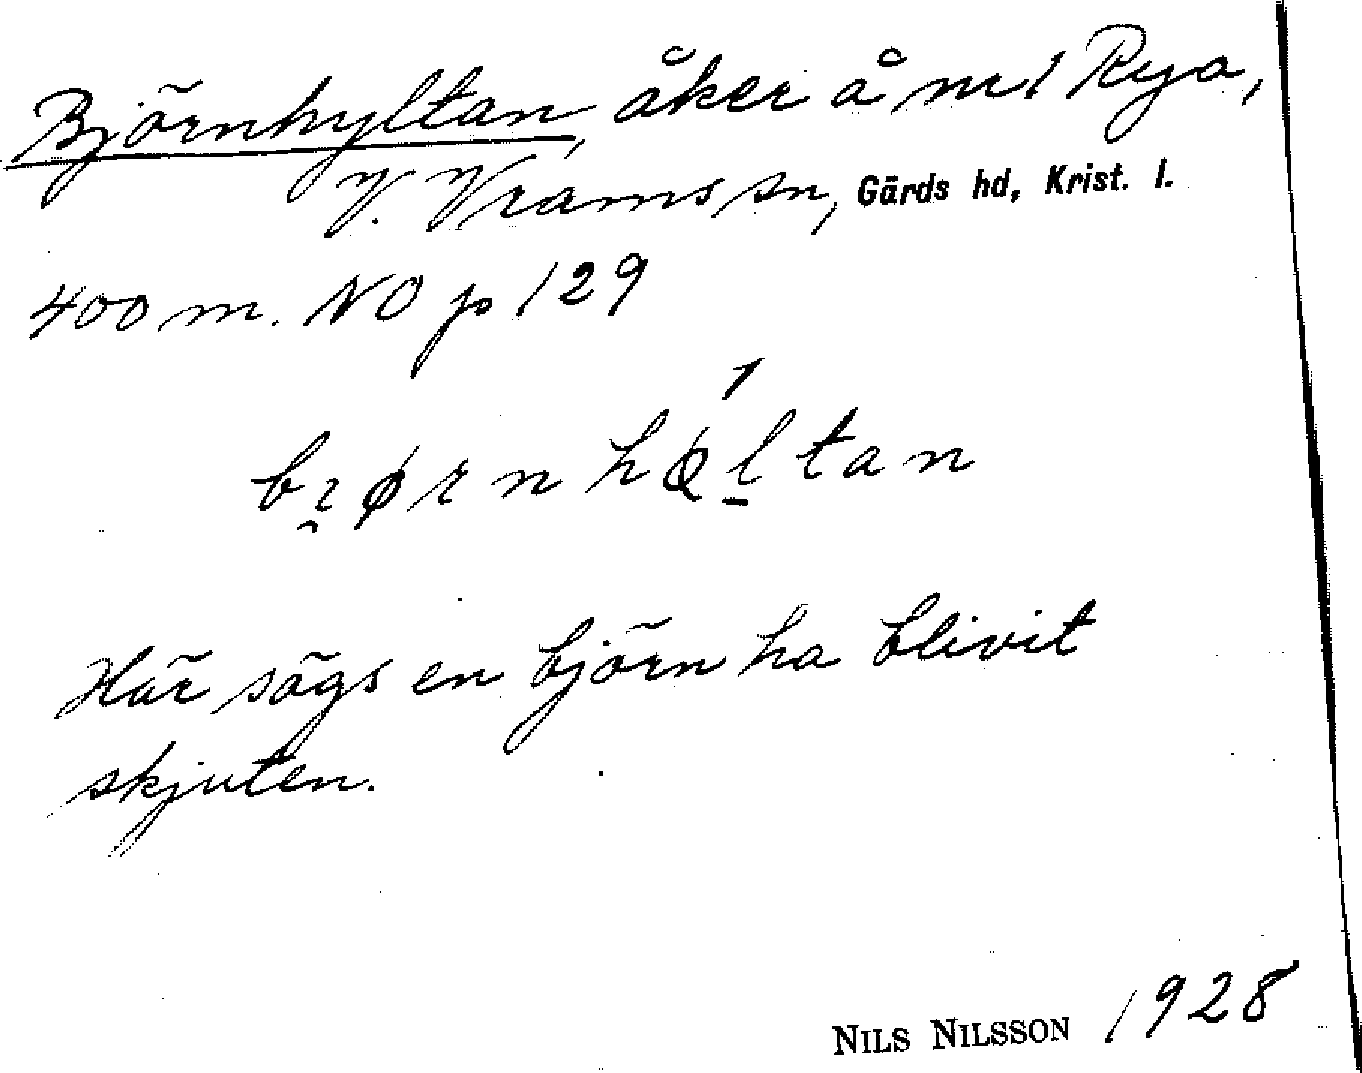 Björnhyltan, åker å nr 1 Rya,
V. Vrams sn, Gärds hd, Krist. l.
400 m. NO p 129
Här sägs en björn ha blivit
skjuten.
NILS NILSSON 1928